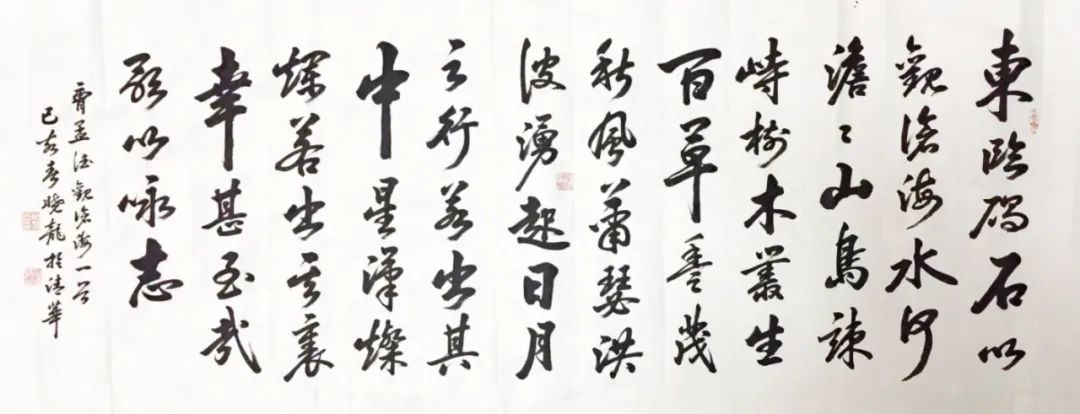 東臨碣石以
觀滄海水何
澹〻山島竦
峙樹木叢生
百草豐茂
秋風蕭瑟洪
波湧起日月
之行若出其
中星漢燦
爛若出其裏
幸甚至哉
歌以咏志
曹孟德觀滄海一首
己亥春曉龍於清華